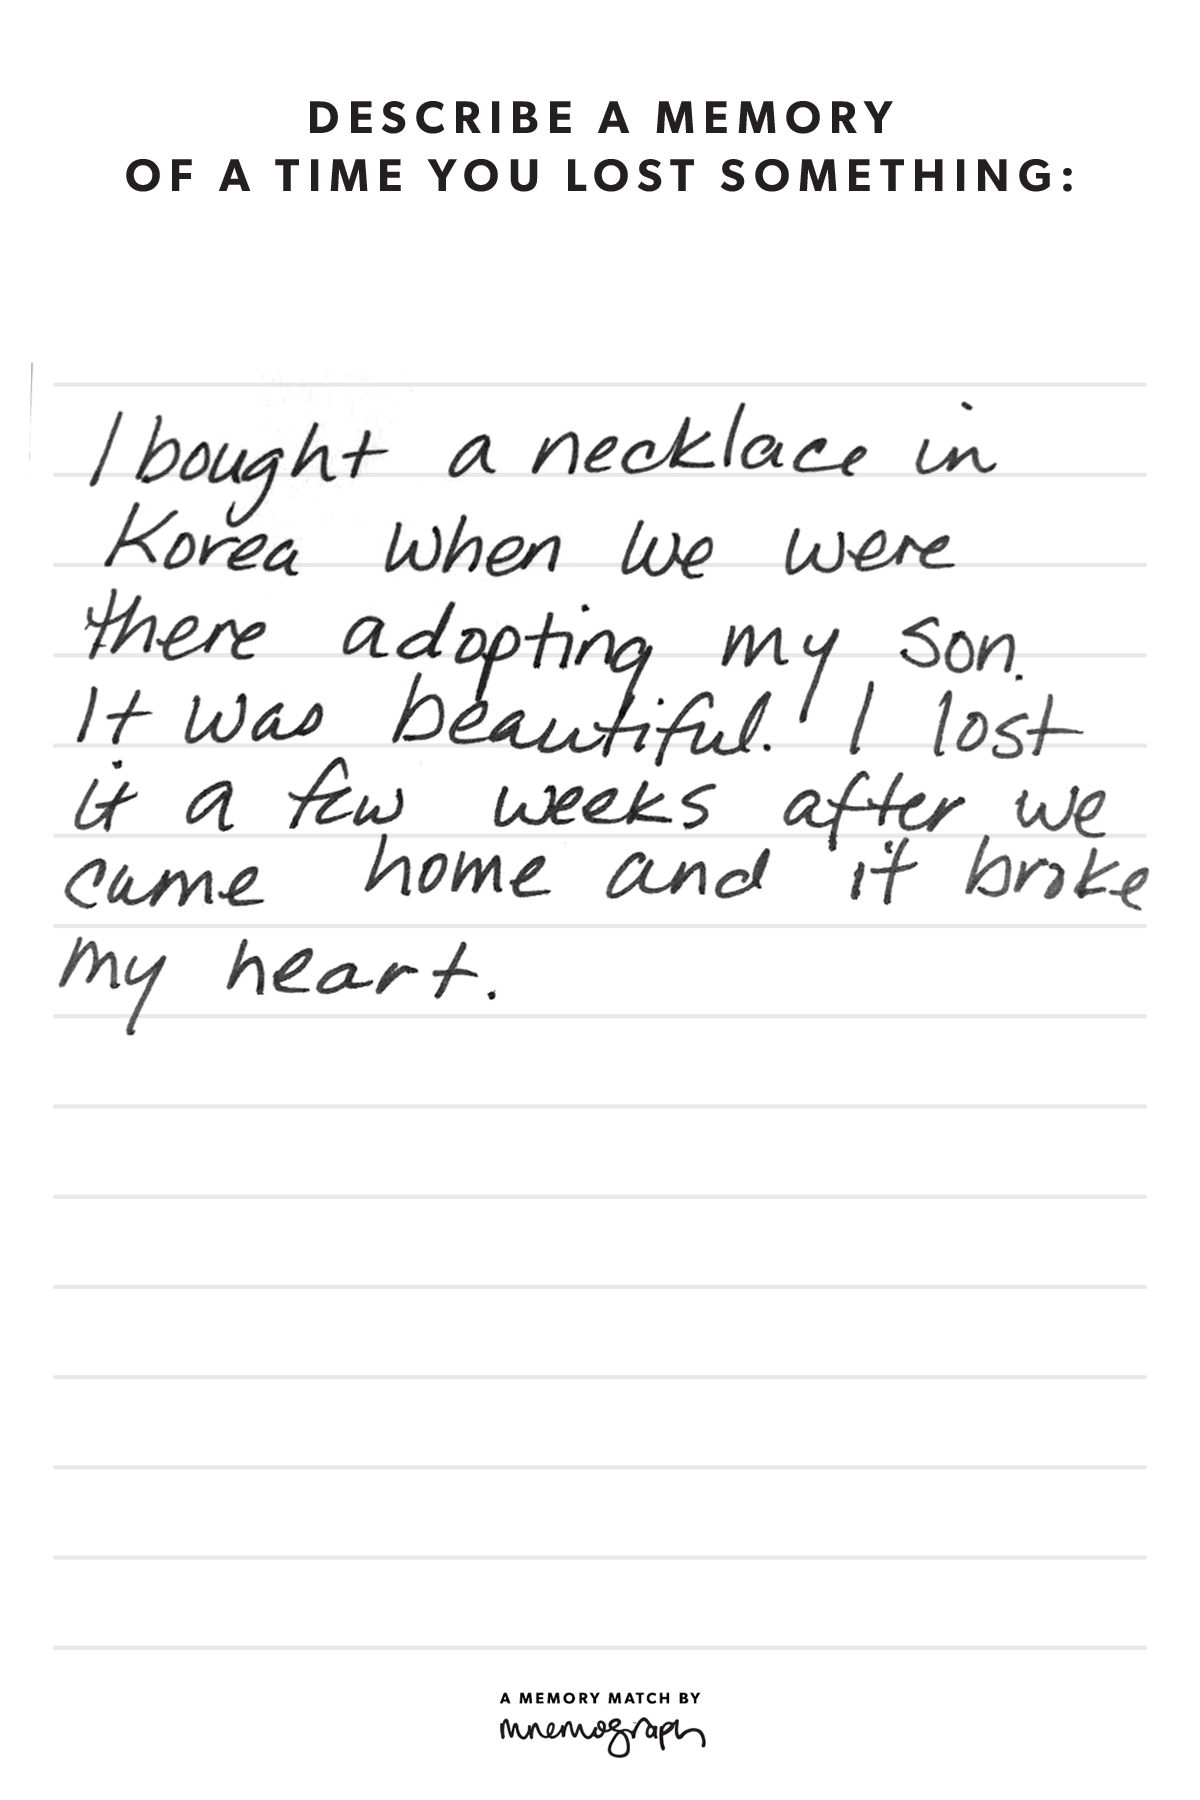 DESCRIBE A MEMORY
OF A TIME YOU LOST SOMETHING:
I bought a necklace in
Korea when we were
there adopting my son.
It was beautiful. I lost
it a few weeks after we
came home and it broke
my heart.
A MEMORY MATCH BY
mnemograph